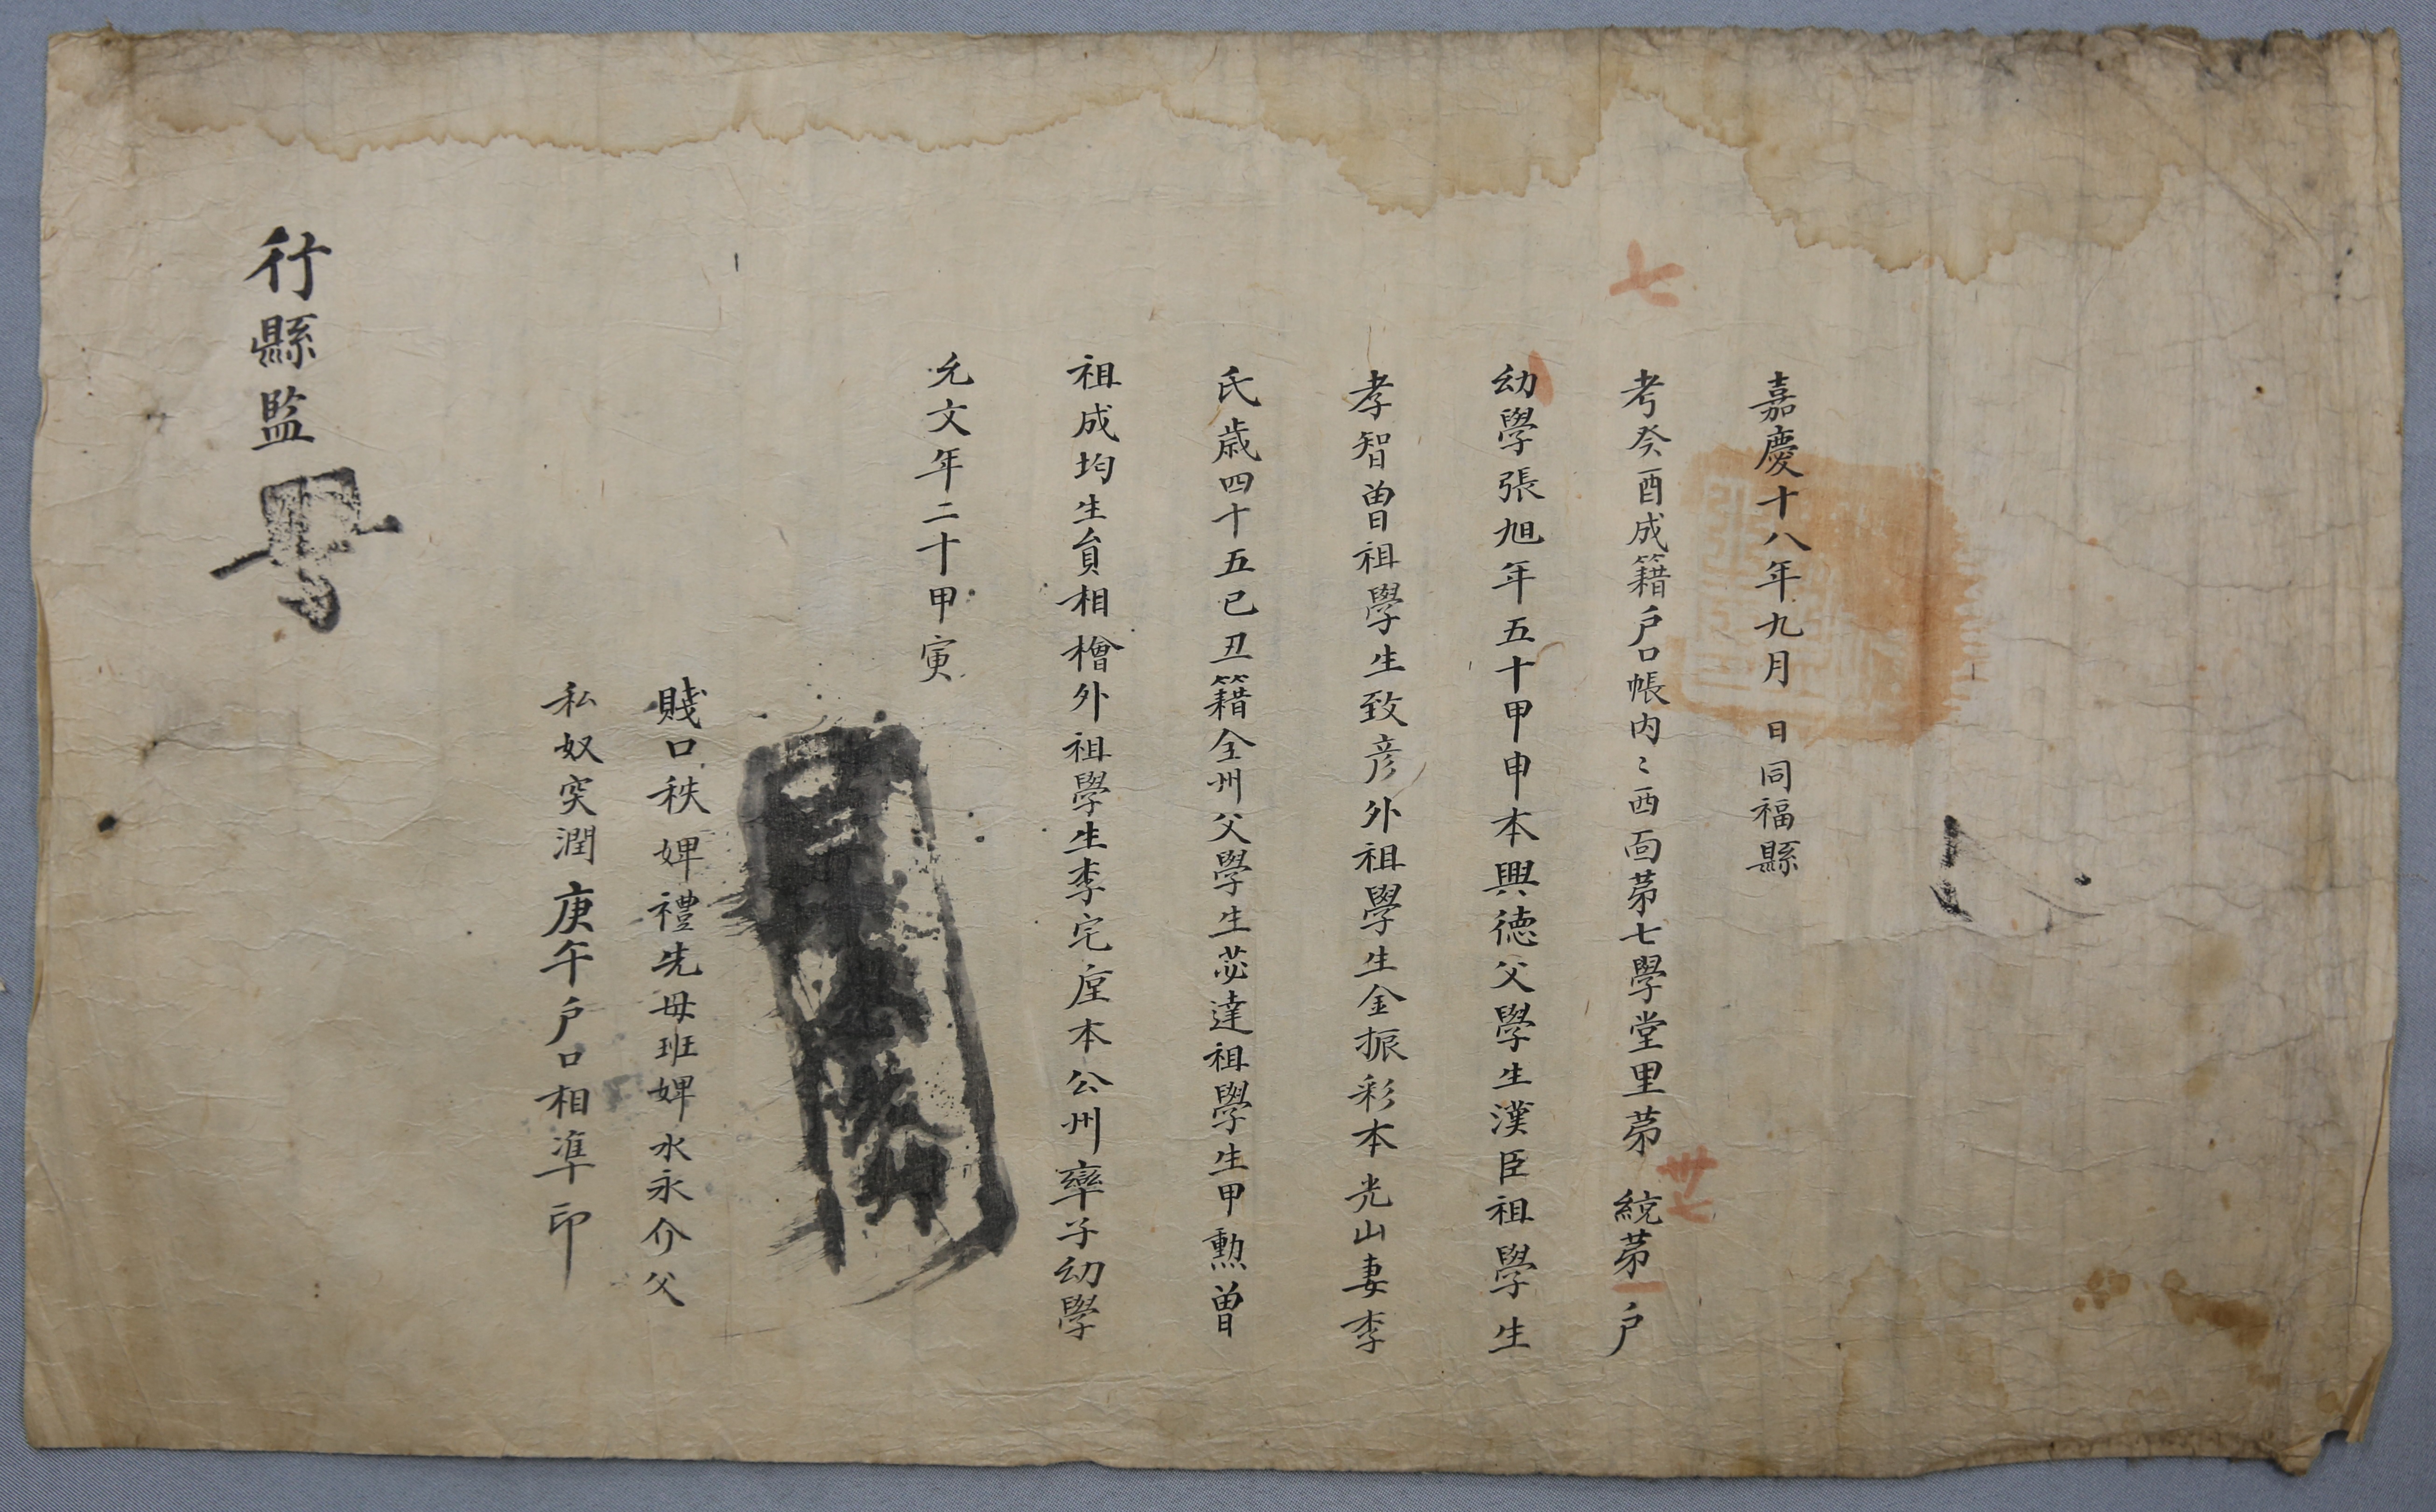 嘉慶十八年九月 日同福縣
七
考癸酉成籍戶口帳內ミ西面苐七學堂里苐卅七統苐一戶
幼學張旭年五十甲申本興德父學生漢臣祖學生
孝智曾祖學生致彦外祖學生金振彩本光山妻李
氏歲四十五己丑籍全州父學生苾達祖學生甲勲曾
祖成均生員相檜外祖學生李宅垕本公州率子幼學
允文年二十甲寅
賤口秩婢禮先母班婢水永介父
私奴突潤庚午戶口相準印
行縣監